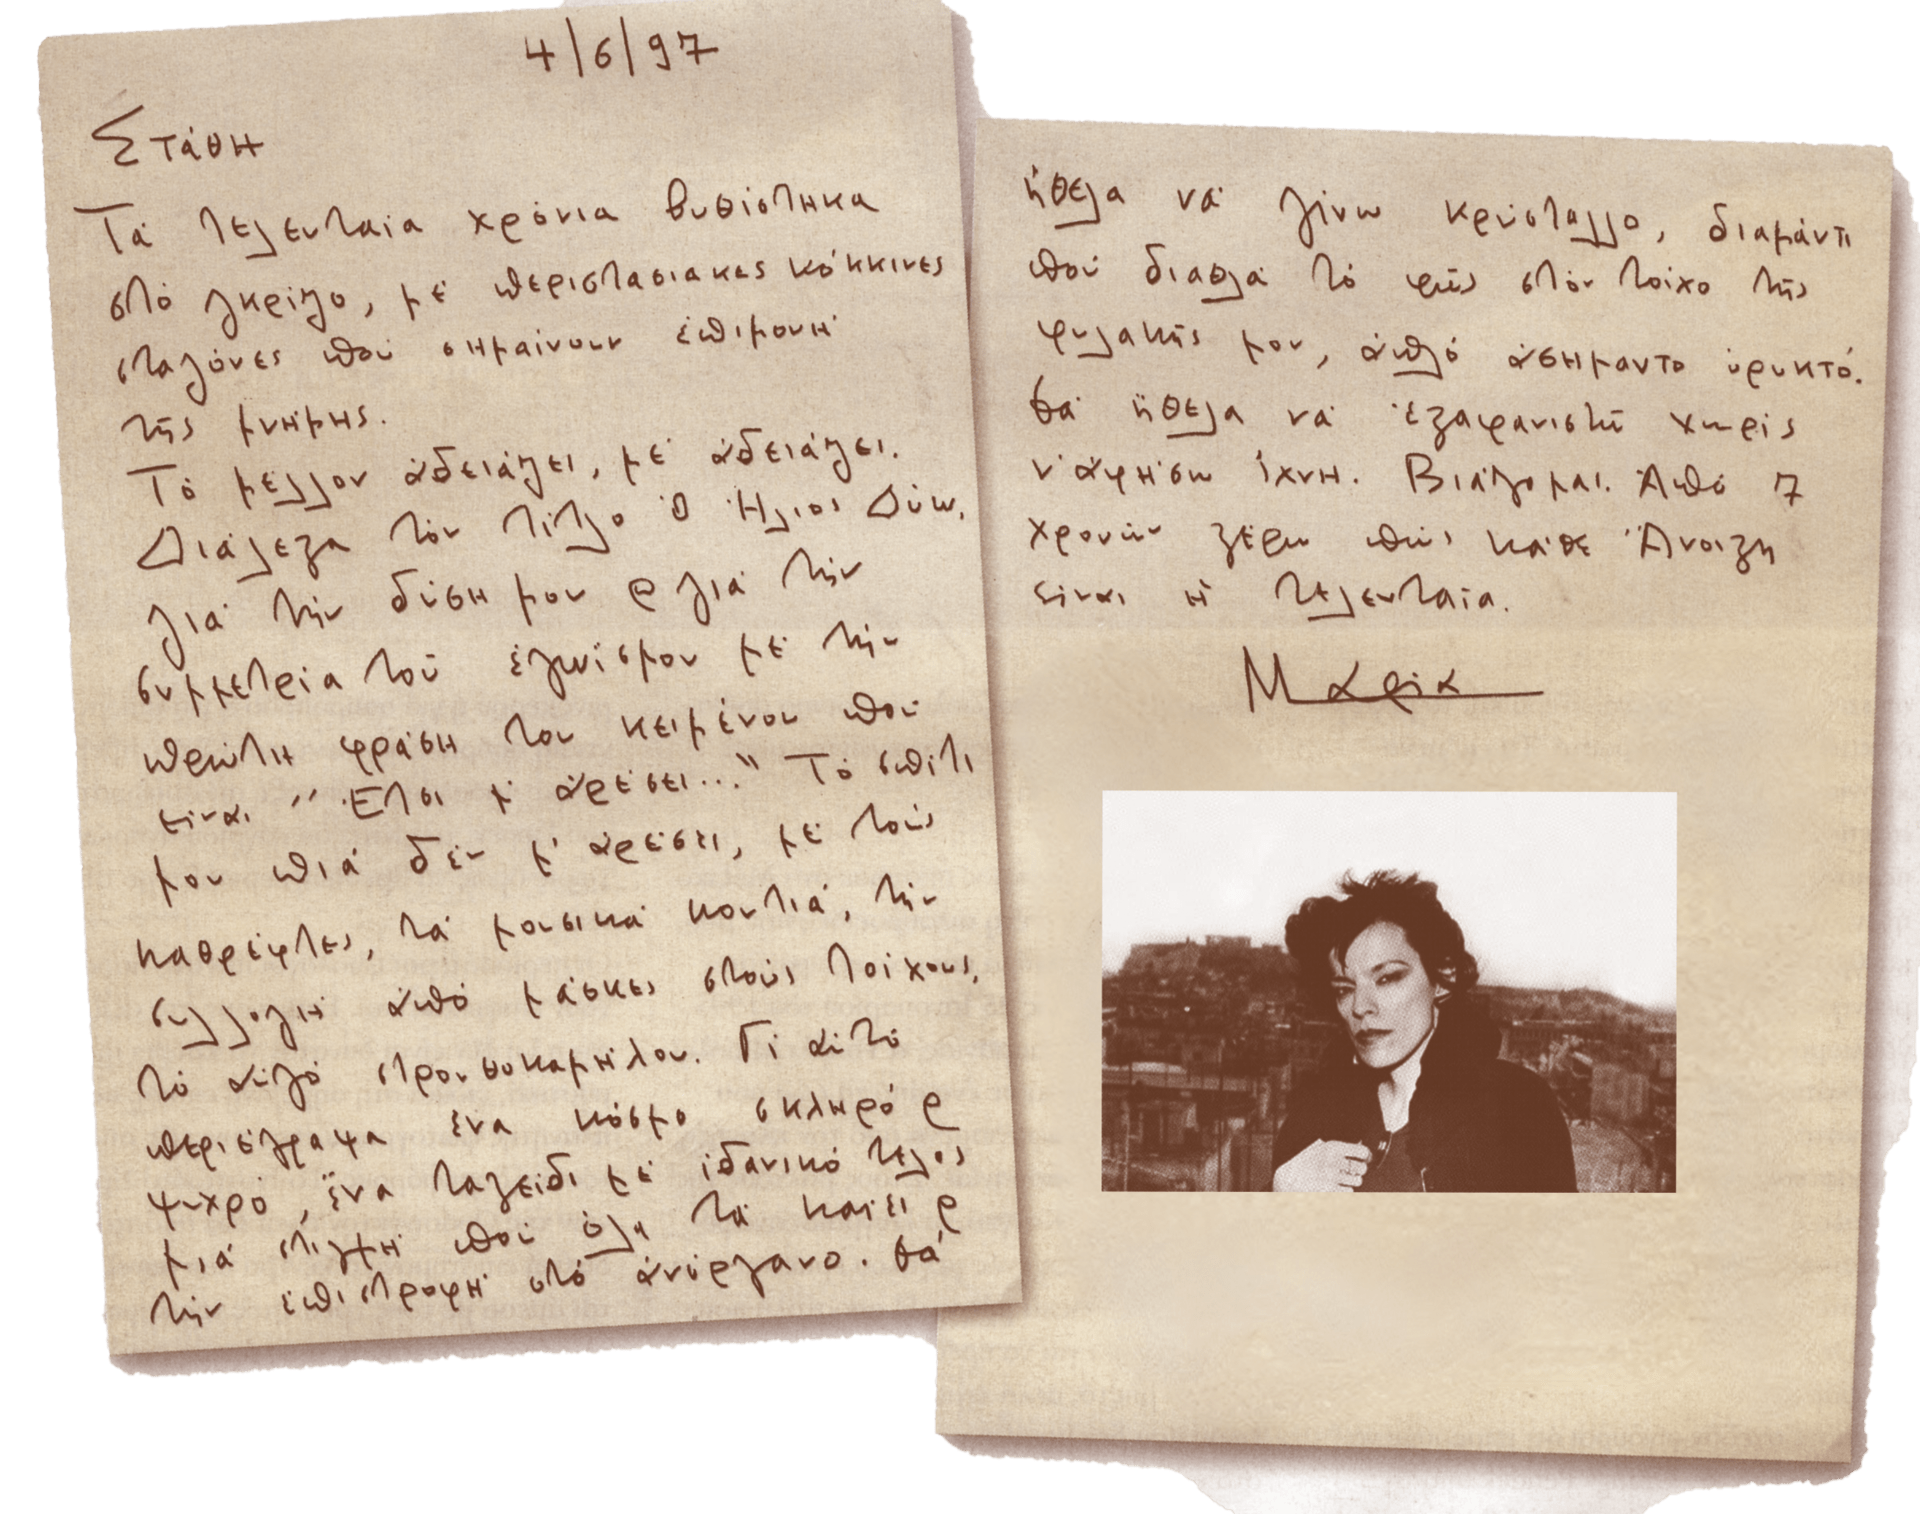 4/6/97
Στάθη
Τά τελευταία χρόνια βυθίστηκα
στό γκρίζο, μέ περιστασιακές κόκκινες
σταγόνες πού σημαίνουν ἐπιμονή
τῆς μνήμης.
Τό μέλλον ἀδειάζει, μέ ἀδειάζει.
Διάλεξα τόν τίτλο Ὁ Ἥλιος Δύω,
γιά τήν δύση μου & γιά τήν
συμμετρία τοῦ ἐγωϊσμου μέ τήν
πρώτη φράση του κειμένου πού
εἶναι "Ἔτσι μ' ἀρέσει..." Τό σπίτι
μου πιά δέν μ' ἀρέσει, μέ τούς
καθρέφτες, τά μουσικά κουτιά, τήν
συλλογή ἀπό μάσκες στούς τοίχους,
τό αὐγό στρουθοκαμήλου. Γι αὐτό
περιέγραψα ἕνα κόσμο σκληρό &
ψυχρό, ἕνα ταξείδι μέ ἰδανικό τέλος
μιά στιγμή πού ὅλα τά καίει &
τήν ἐπιστροφή στό ἀνόργανο. Θά
ἤθελα νά γίνω κρύσταλλο, διαμάντι
πού διαθλά τό φῶς στόν τοίχο τῆς
φυλακῆς μου, ἁπλό ἀσήμαντο ὀρυκτό.
Θά ἤθελα νά ἐξαφανιστῶ χωρίς
ν' ἀφήσω ἴχνη. Βιάζομαι. Ἀπό 7
χρονών ξέρω πώς κάθε Ἄνοιξη
εἶναι ἡ τελευταία.
Μαρία